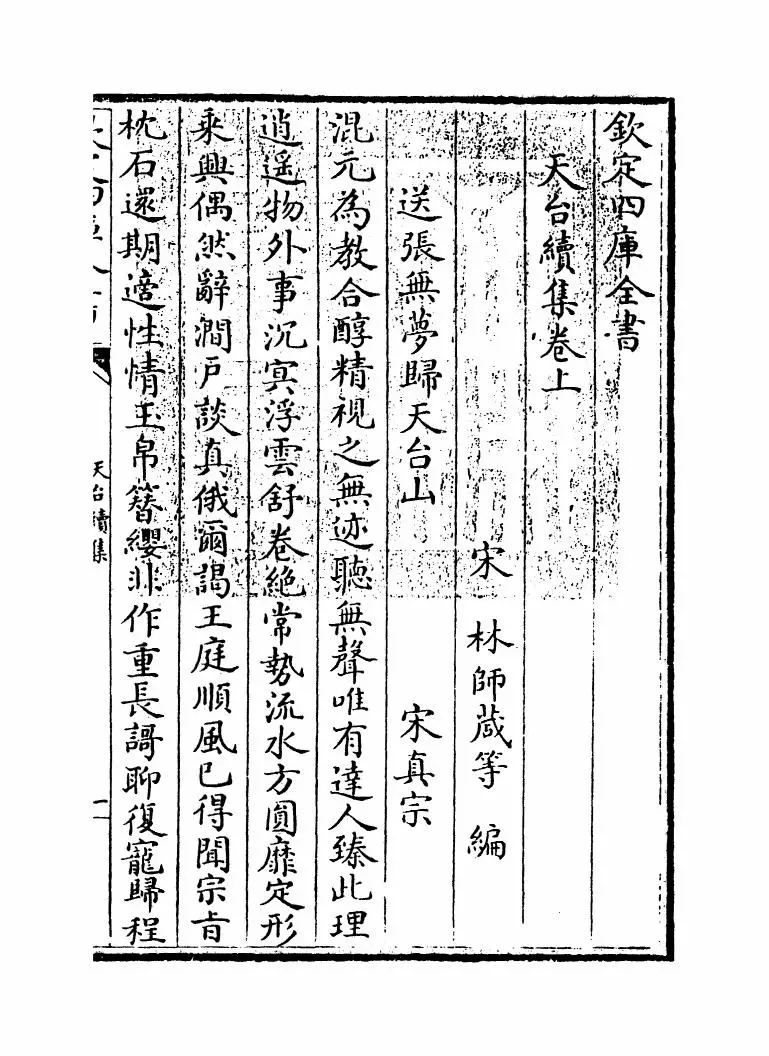 欽定四庫全書
天台續集卷上
宋 林師蒧等 編
送張無夢歸天台山 宋真宗
混元為教合醇精視之無迹聽無聲唯有達人臻此理
逍遥物外事沉冥浮雲舒卷絶常勢流水方圓靡定形
乘興偶然辭澗戶談真俄爾謁王庭順風已得聞宗旨
枕石還期適性情玉帛簪纓非作重長謌聊復寵歸程
天台續集
一